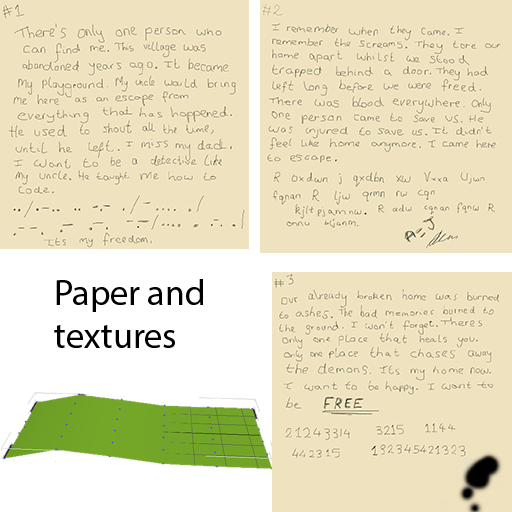 #1
There's only one person who
can find me. This village was
abandoned years ago. It became
my playground. My uncle would bring
me here as an escape from
everything that has happened.
He used to shout all the time,
until he left. I miss my dad.
I want to be a detective like
my uncle. He taught me how to
code.
Its my freedom.
#2
I remember when they came. I
remember the screams. They tore our
home apart whilst we stood
trapped behind a door. They had
left long before we were freed.
There was blood everywhere. Only
one person came to save us. He
was injured to save us. It didn't
feel like home anymore. I came here
to escape.
R oxdwn j qxdbn xw Vxxa Ujwn
fqnan R ljw qrmn rw cqn
kjltpjamnw. R adw cqnan fqnw R
onnu bljanm.
A=J
Paper and
textures
#3
Our already broken home was burned
to ashes. The bad memories burned to
the ground. I won't forget. There's
only one place that heals you.
Only one place that chases away
the demons. Its my home now.
I want to be happy. I want to
be FREE
21243314 3215 1144
442315 192345421323